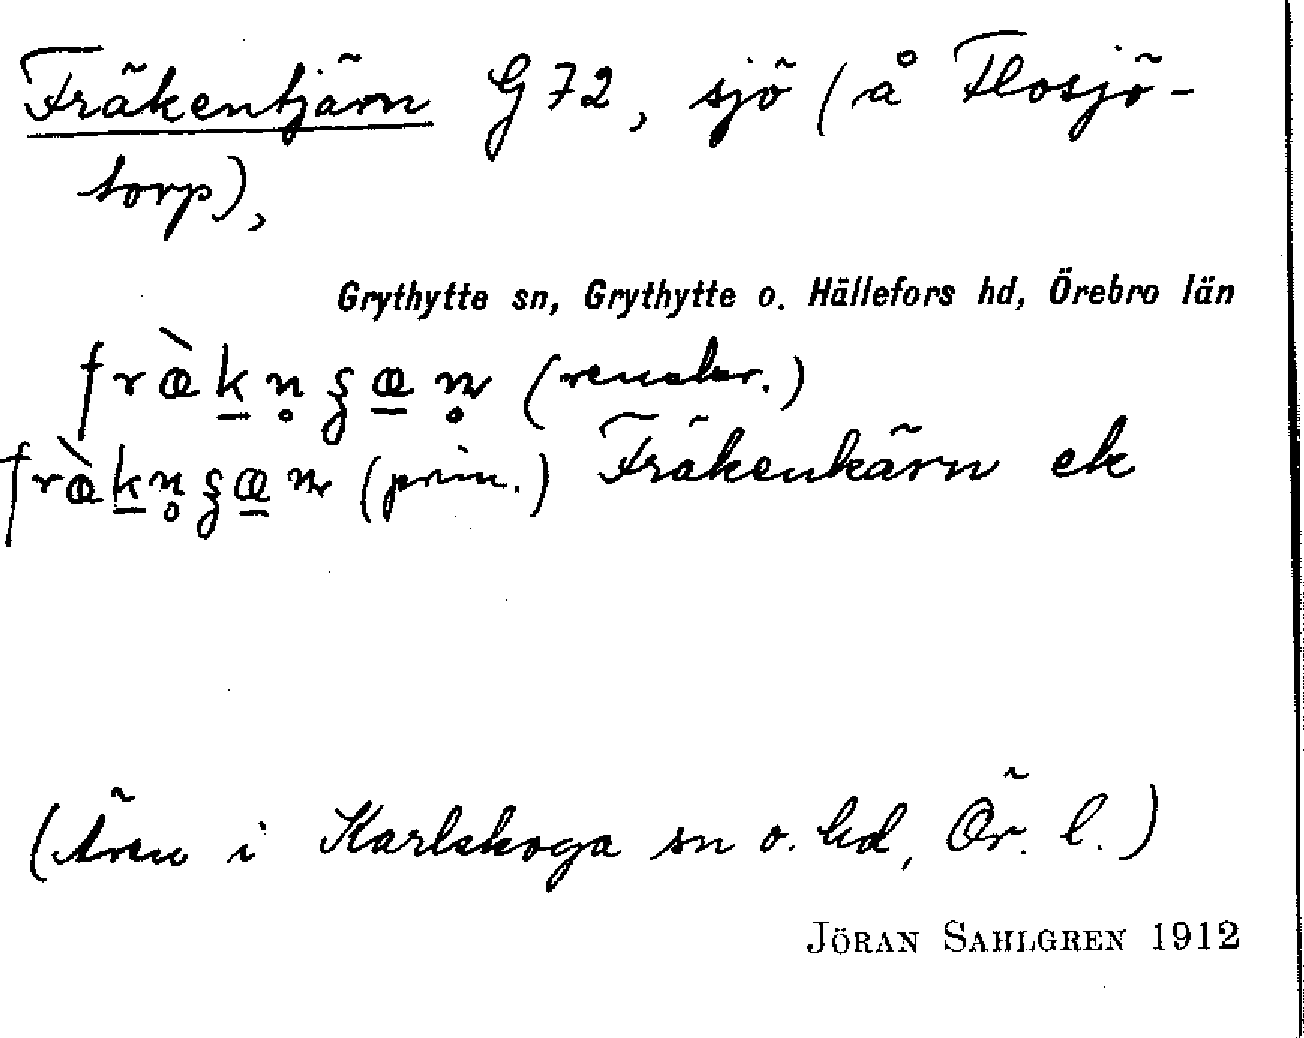 Fräkentjärn G 72, sjö (å Flosjö-
torp),
Grythytte sn, Grythytte o. Hällefors hd, Örebro län
fræ̀k̲n̥ʂæ̲n̥ (renskr.)
fræ̀k̲n̥ʂæ̲n (prim.) Fräkenkärn ek
(Även i Karlskoga sn o. hd, Ör. l.)
JÖRAN SAHLGREN 1912